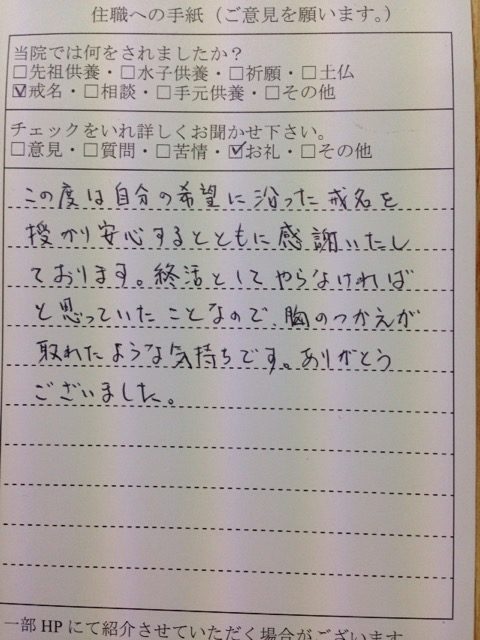 住職への手紙（ご意見を願います。）
当院では何をされましたか？
□先祖供養・□水子供養・□祈願・□土仏
☑戒名・□相談・□手元供養・□その他
チェックをいれ詳しくお聞かせ下さい。
□意見・□質問・□苦情・☑お礼・□その他
この度は自分の希望に沿った戒名を
授かり安心するとともに感謝いたし
ております。終活としてやらなければ
と思っていたことなので、胸のつかえが
取れたような気持ちです。ありがとう
ございました。
一部 HP にて紹介させていただく場合がございます。